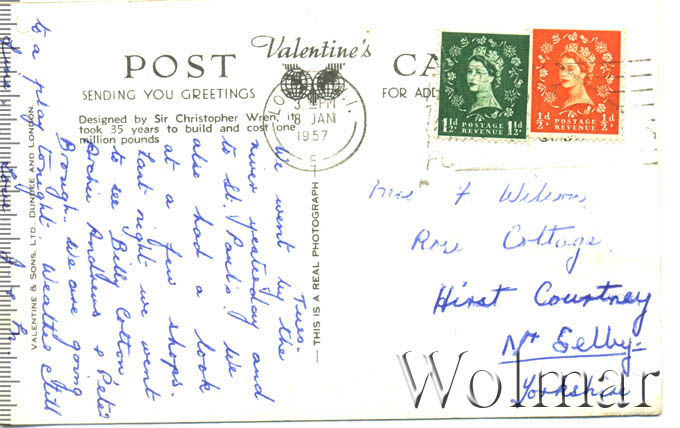 Valentine's
POST CA
SENDING YOU GREETINGS
FOR ADD
Designed by Sir Christopher Wren, it
took 35 years to build and cost one
million pounds
3 PM
8 JAN
1957
E
1½D POSTAGE REVENUE 1½D
½D POSTAGE REVENUE ½D
VALENTINE & SONS, LTD. DUNDEE AND LONDON
THIS IS A REAL PHOTOGRAPH
Tues-
We went by the
river yesterday and
to St. Paul's. We
also had a look
at a few shops.
Last night we went
to see Billy Cotton
Archie Andrews & Peter
Brough. We are going
to a play tonight. Weather still
Love
Mrs F Wilson
Rose Cottage
Hirst Courtney
Nr Selby-
Yorkshire
Wolmar